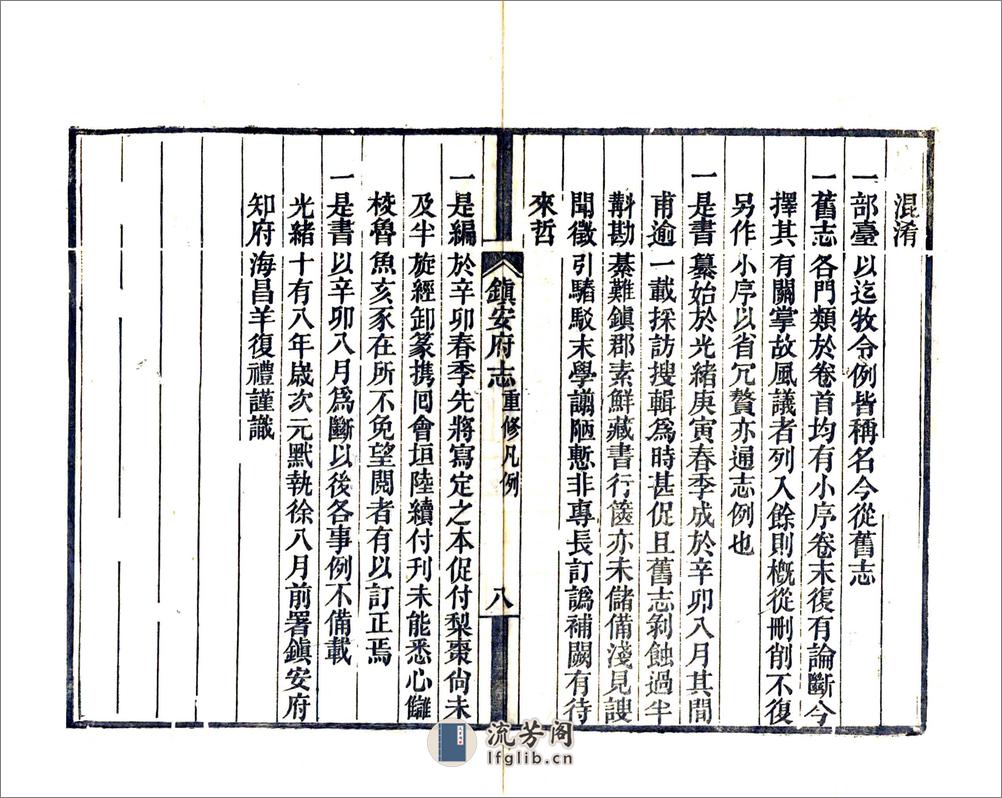 混淆
一部臺以迄牧令例皆稱名今從舊志
一舊志各門類於卷首均有小序卷末復有論斷今
擇其有關掌故風議者列入餘則槪從刪削不復
另作小序以省冗贅亦通志例也
一是書纂始於光緒庚寅春季成於辛卯八月其間
甫逾一載採訪搜輯爲時甚促且舊志剝蝕過半
斠勘綦難鎭郡素鮮藏書行篋亦未儲備淺見謏
聞徵引踳駁末學譾陋慙非專長訂譌補闕有待
來哲
鎭安府志 重修凡例 八
一是編於辛卯春季先將寫定之本促付梨棗尙未
及半旋經卸篆携囘會垣陸續付刊未能悉心讎
校魯魚亥豕在所不免望閱者有以訂正焉
一是書以辛卯八月爲斷以後各事例不備載
光緒十有八年歲次元默執徐八月前署鎭安府
知府海昌羊復禮謹識
流芳阁
lfglib.cn